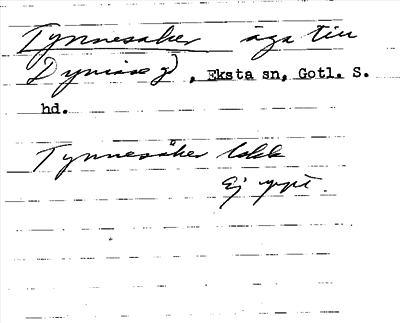 Tynnesaker äga till
Dyniase gd, Eksta sn, Gotl. S.
hd.
Tynnesåker lokk
Ej uppt.